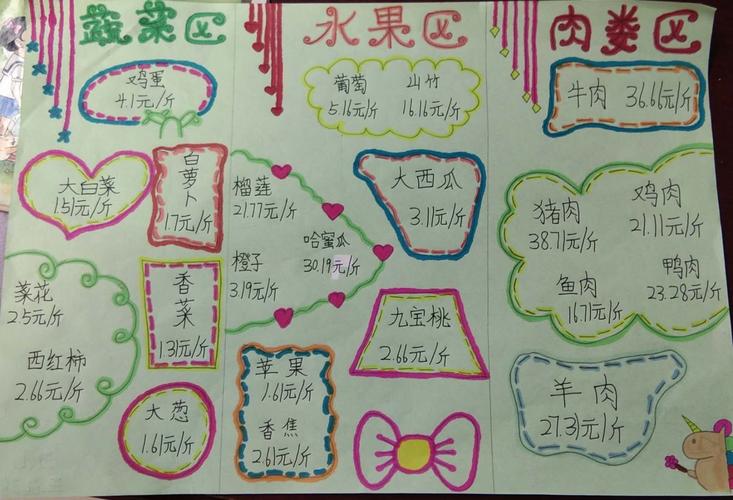 蔬菜区
鸡蛋
4.1元/斤
大白菜
1.51元/斤
白萝卜
1.7元/斤
菜花
2.5元/斤
西红柿
2.66元/斤
香菜
1.31元/斤
大葱
1.61元/斤
水果区
葡萄
5.16元/斤
山竹
16.16元/斤
榴莲
21.77元/斤
哈蜜瓜
30.19元/斤
橙子
3.19元/斤
大西瓜
3.11元/斤
九宝桃
2.66元/斤
苹果
1.61元/斤
香焦
2.61元/斤
肉类区
牛肉 36.66元/斤
猪肉
38.71元/斤
鸡肉
21.11元/斤
鱼肉
16.71元/斤
鸭肉
23.28元/斤
羊肉
27.31元/斤